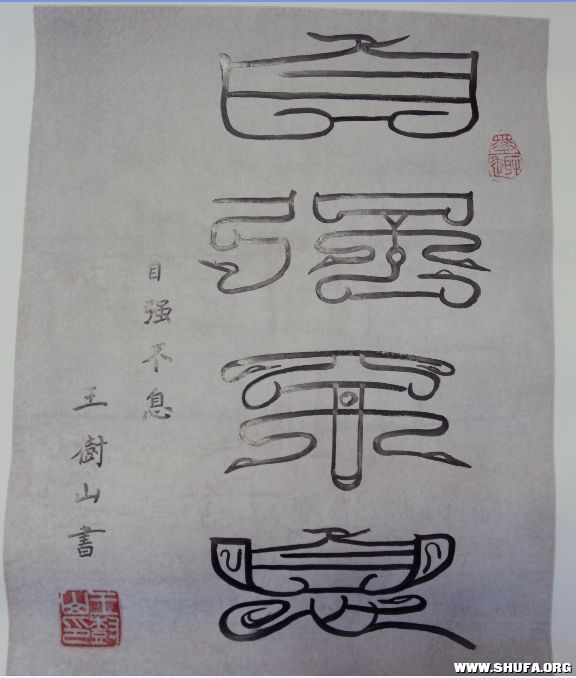 自强不息
自强不息
王樹山書
王樹山印
WWW.SHUFA.ORG